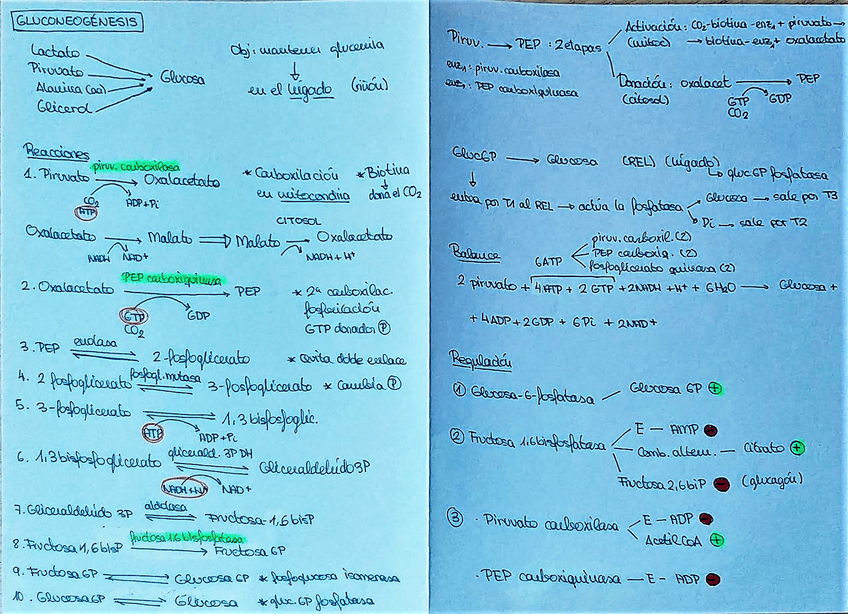 GLUCONEOGÉNESIS
Lactato
Piruvato
Alanina (aa)
Glicerol
Glucosa
Obj: mantener glucemia
en el hígado (riñón)
Reacciones
piruv. carboxilasa
1. Piruvato → Oxalacetato * Carboxilación * Biotina
CO2 ADP+Pi en mitocondria dona el CO2
ATP
CITOSOL
Oxalacetato → Malato ⇒ Malato → Oxalacetato
NADH NAD+ NADH+H+
PEP carboxiquinasa
2. Oxalacetato → PEP * 2ª carboxilac.
fosforilación
GTP GDP GTP donador P
CO2
enolasa
3. PEP ⇌ 2-fosfoglicerato * quita doble enlace
fosfogl. mutasa
4. 2 fosfoglicerato ⇌ 3-fosfoglicerato * cambia P
5. 3-fosfoglicerato ⇌ 1,3 bisfosfoglic.
ATP ADP+Pi
glicerald. 3P DH
6. 1,3 bisfosfoglicerato ⇌ Gliceraldehído 3P
NADH+H+ NAD+
aldolasa
7. Gliceraldehído 3P ⇌ Fructosa-1,6 bisP
fructosa 1,6 bisfosfatasa
8. Fructosa 1,6 bisP → Fructosa 6P
9. Fructosa 6P ⇌ Glucosa 6P * fosfoglucosa isomerasa
10. Glucosa 6P ⇌ Glucosa * gluc. 6P fosfatasa
Piruv. → PEP : 2 etapas
Activación: CO2-biotina-enz1 + piruvato →
(mitoc) → biotina-enz1 + oxalacetato
enz1: piruv. carboxilasa
enz2: PEP carboxiquinasa
Donación: oxalacet → PEP
(citosol) GTP GDP
CO2
Gluc6P → Glucosa (REL) (hígado)
gluc 6P fosfatasa
entra por T1 al REL → activa la fosfatasa
Glucosa → sale por T3
Pi → sale por T2
Balance
6ATP
piruv. carboxil. (2)
PEP carboxiq. (2)
fosfoglicerato quinasa (2)
2 piruvato + 4ATP + 2 GTP + 2NADH + H+ + 6H2O → Glucosa +
+ 4ADP + 2GDP + 6Pi + 2NAD+
Regulación
① Glucosa-6-fosfatasa Glucosa 6P +
② Fructosa 1,6 bisfosfatasa
E - AMP -
Comb. altern. - Citrato +
Fructosa 2,6 biP - (glucagón)
③ · Piruvato carboxilasa
E - ADP -
Acetil CoA +
· PEP carboxiquinasa - E - ADP -